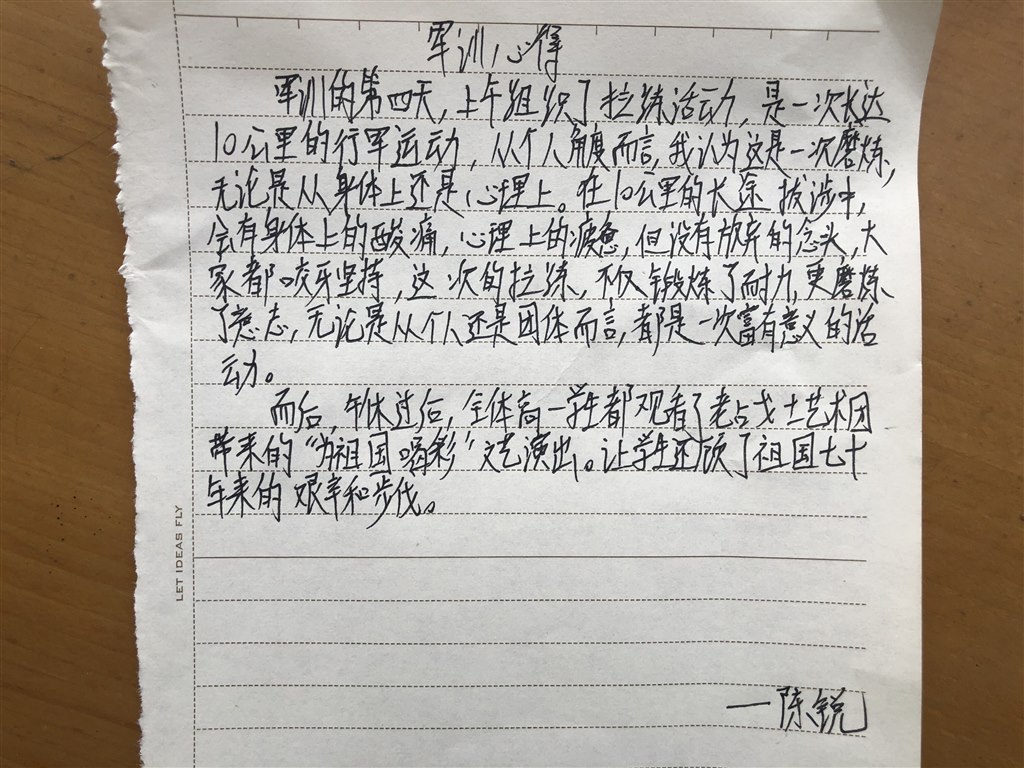 军训心得
军训的第四天，上午组织了拉练活动，是一次长达
10公里的行军运动，从个人角度而言，我认为这是一次磨炼，
无论是从身体上还是心理上。在10公里的长途拔涉中，
会有身体上的酸痛，心理上的疲惫，但没有放弃的念头，大
家都咬牙坚持，这次的拉练，不仅锻炼了耐力，更磨炼
了意志，无论是从个人还是团体而言，都是一次富有意义的活
动。
而后，午休过后，全体高一学生都观看了老占戈士艺术团
带来的“为祖国喝彩”文艺演出。让学生还顾了祖国七十
年来的艰辛和步伐。
LET IDEAS FLY
—陈锐